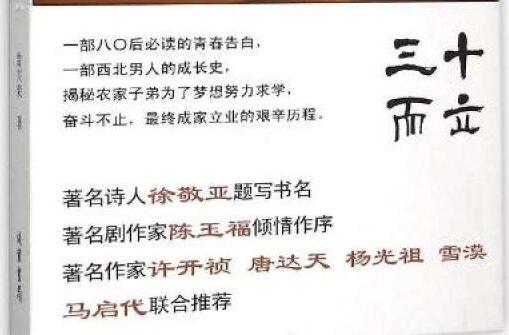 一部八〇后必读的青春告白，
一部西北男人的成长史，
揭秘农家子弟为了梦想努力求学，
奋斗不止，最终成家立业的艰辛历程。
三十
而立
著名诗人徐敬亚题写书名
著名剧作家陈玉福倾情作序
著名作家许开祯 唐达天 杨光祖 雪漠
马启代联合推荐
著